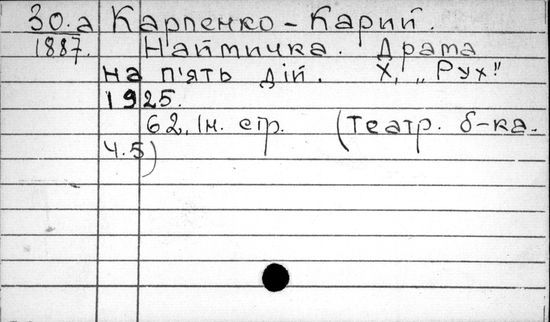 30.а Карпенко-Карий.
1887. Наймичка. Драма
на п'ять дій. Х, „Рух"
1925.
62, Ін. стр. (Театр. б-ка.
Ч.5)